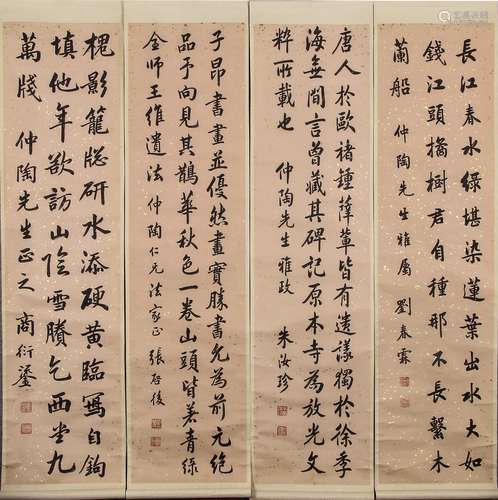 長江春水綠堪染蓮葉出水大如
錢江頭橘樹君自種那不長繫木
蘭船 仲陶先生雅屬 劉春霖
唐人於歐褚鍾薛輩皆有造樣獨於徐季
海無間言曾藏其碑記原本寺為放光文
粹所載也 仲陶先生雅政 朱汝珍
子昂書畫並優然畫實勝書允為前元絕
品予向見其鵲華秋色一卷山頭皆著青綠
全師王維遺法 仲陶仁兄法家正 張啓後
槐影籠窗研水添硬黃臨寫自鉤
填他年欲訪山陰雪賸乞西堂九
萬牋 仲陶先生正之 商衍鎏